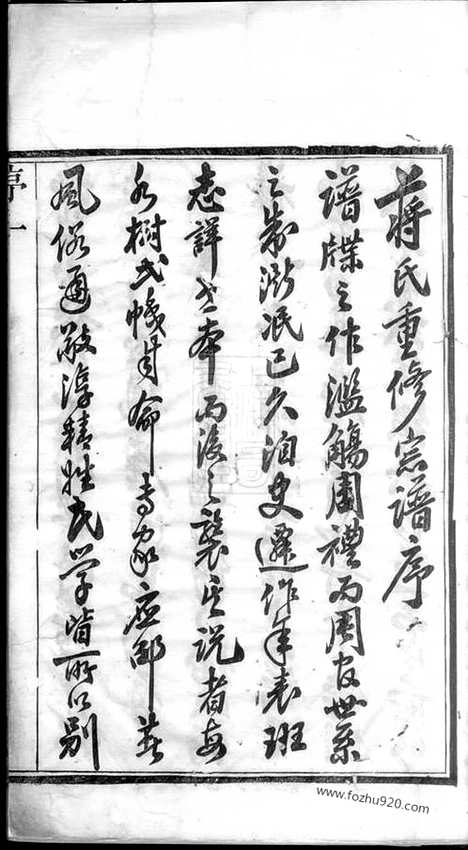 蔣氏重修宗譜序
譜牒之作濫觴周禮而周官世系
之制澌泯已久洎史遷作年表班
志詳世本而後之襲其説者每
水樹弍幟
風俗通敬淳精姓氏學皆所以別
序一
www.fozhu920.com